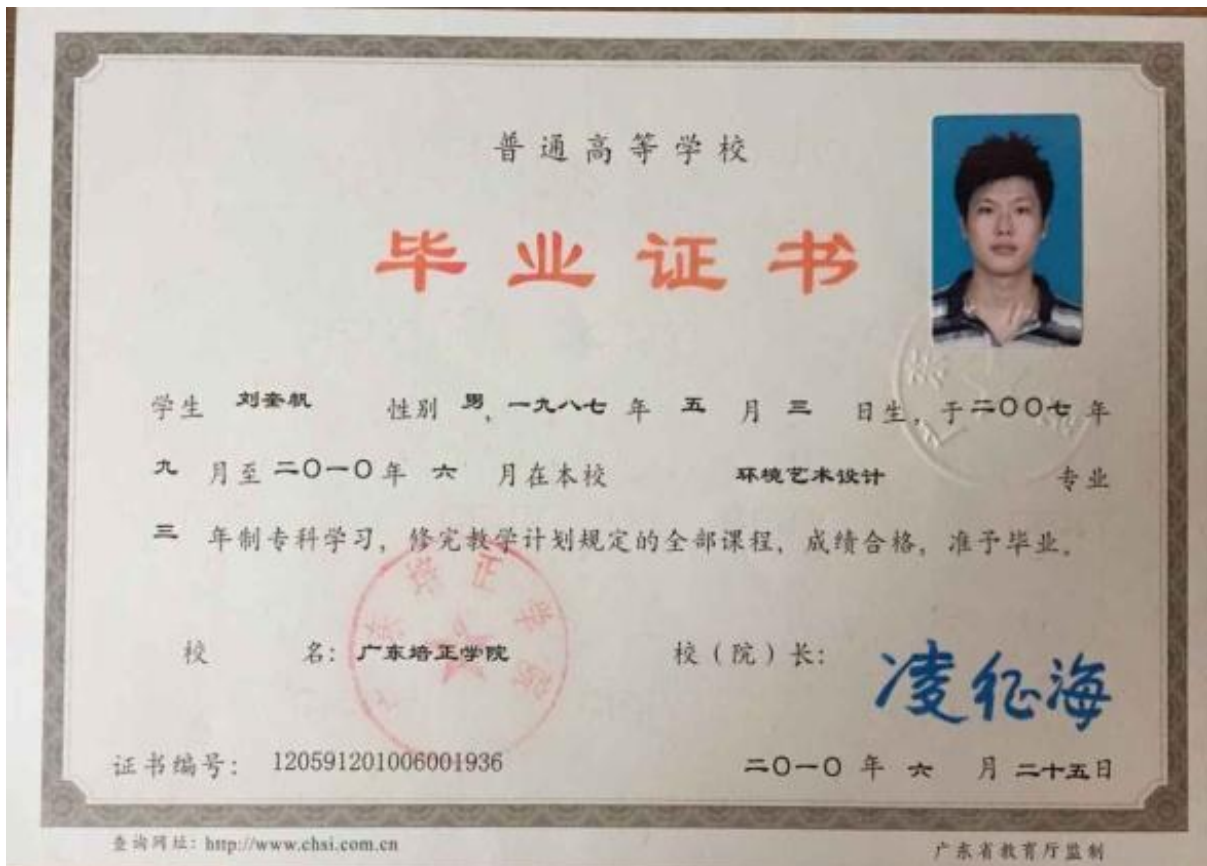 普通高等学校
毕业证书
学生 刘奎帆 性别 男，一九八七 年 五 月 三 日生，于二〇〇七年
九 月至 二〇一〇年 六 月在本校 环境艺术设计 专业
三 年制专科学习，修完教学计划规定的全部课程，成绩合格，准予毕业。
广东培正学院
校 名：广东培正学院 校（院）长：凌征海
证书编号：120591201006001936 二〇一〇 年 六 月 二十五日
查询网址：http://www.chsi.com.cn 广东省教育厅监制